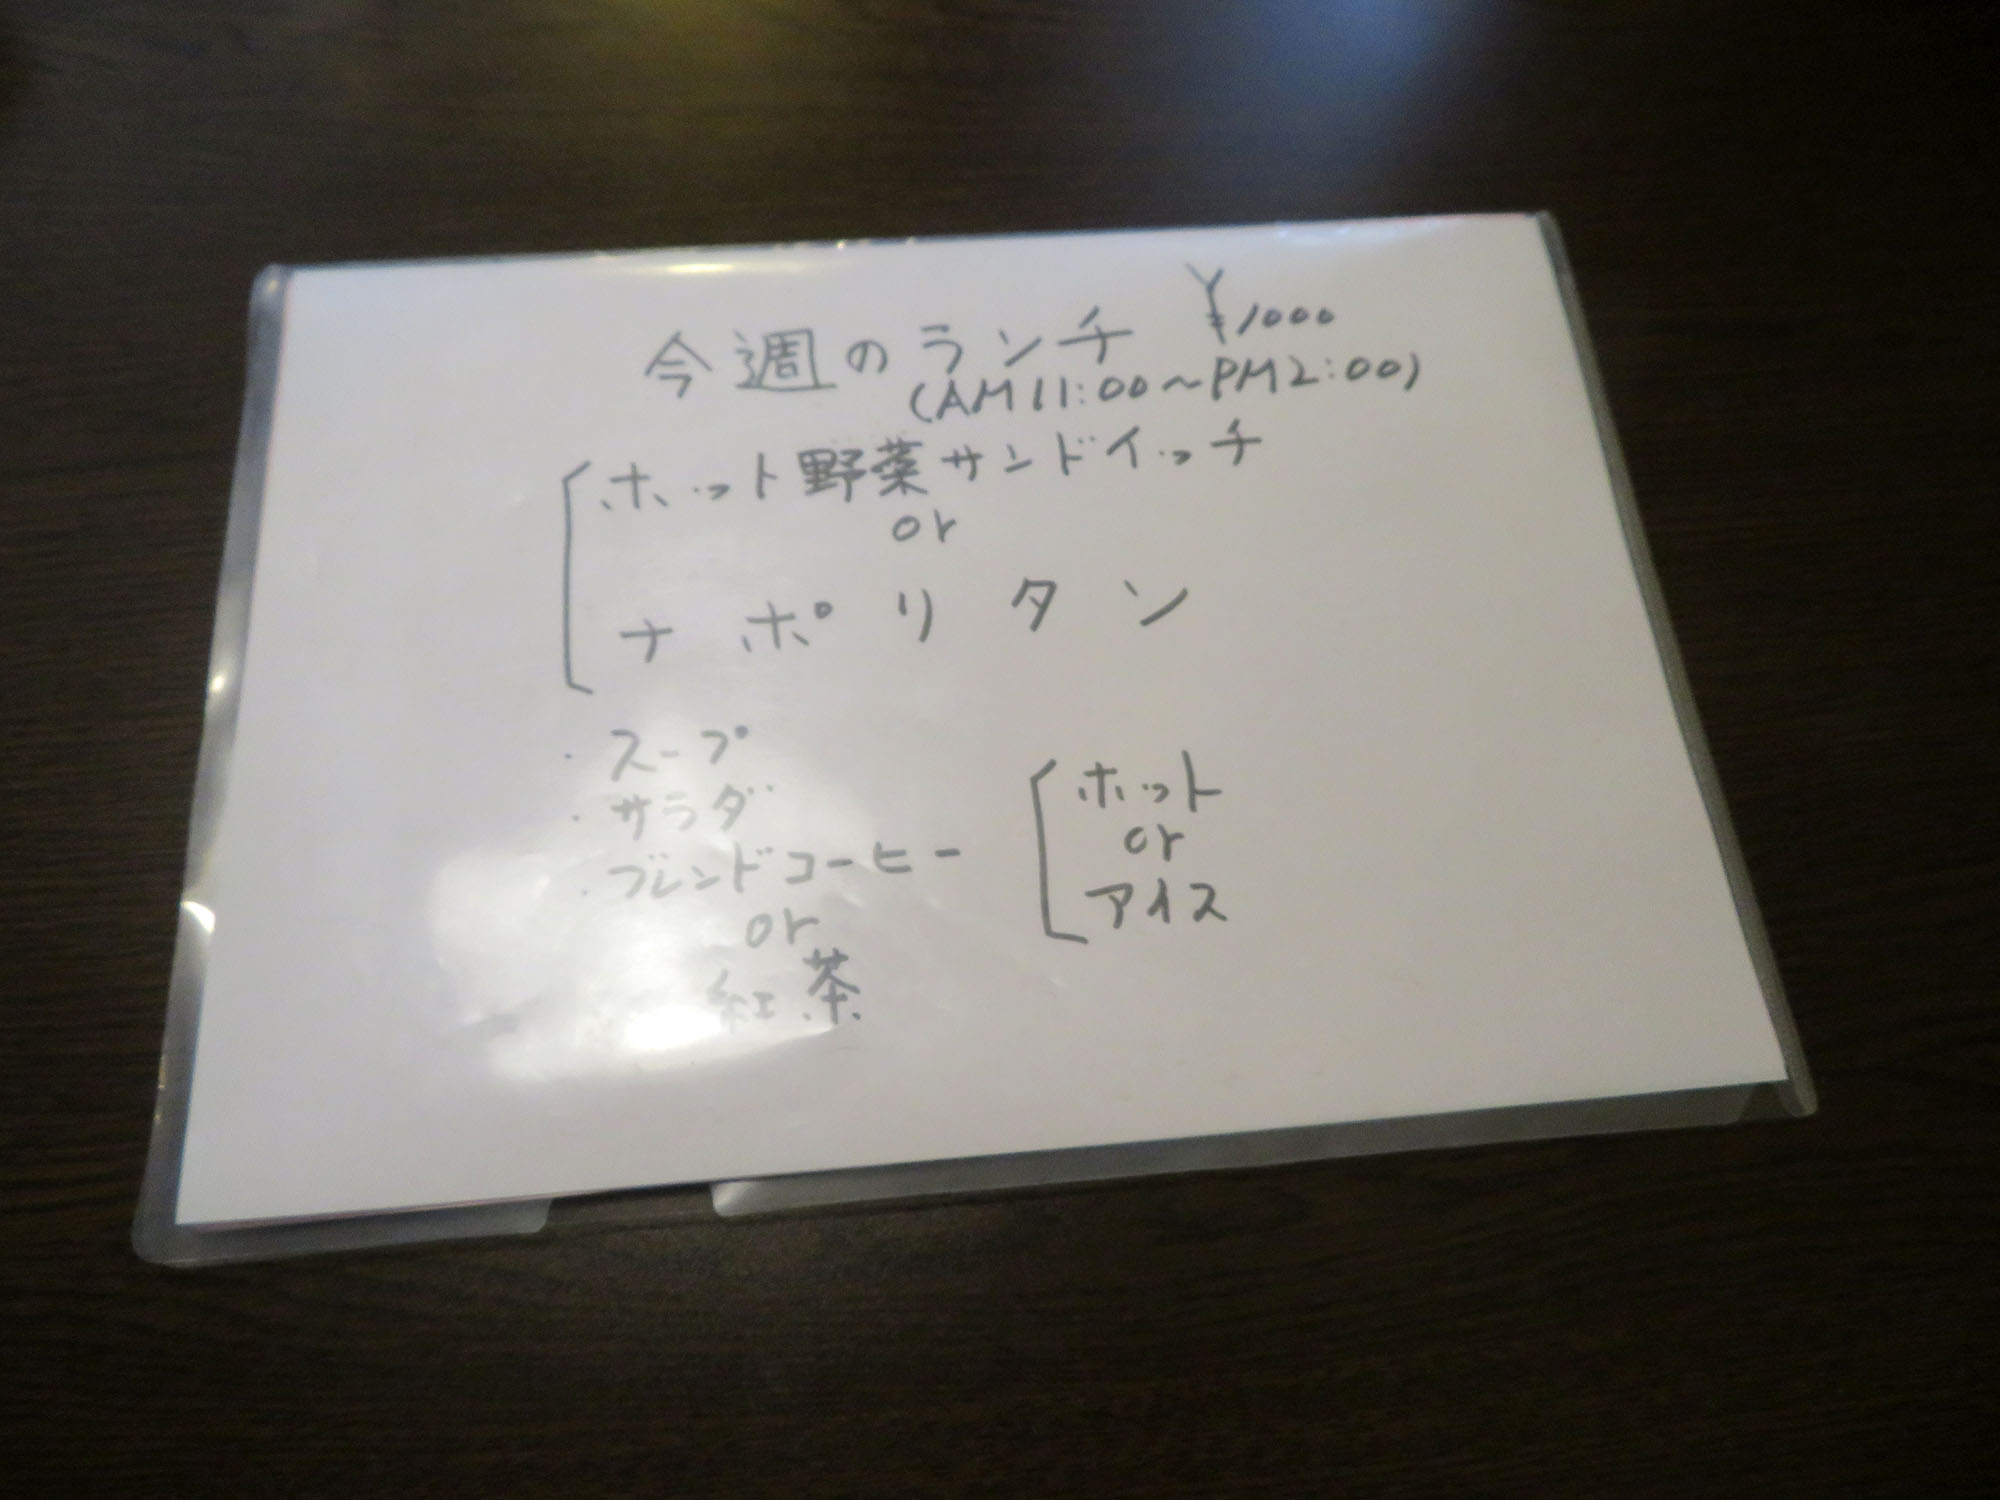 今週のランチ ¥1000
(AM11:00～PM2:00)
ホット野菜サンドイッチ
or
ナポリタン
・スープ
・サラダ
・ブレンドコーヒー
or
紅茶
ホット
or
アイス